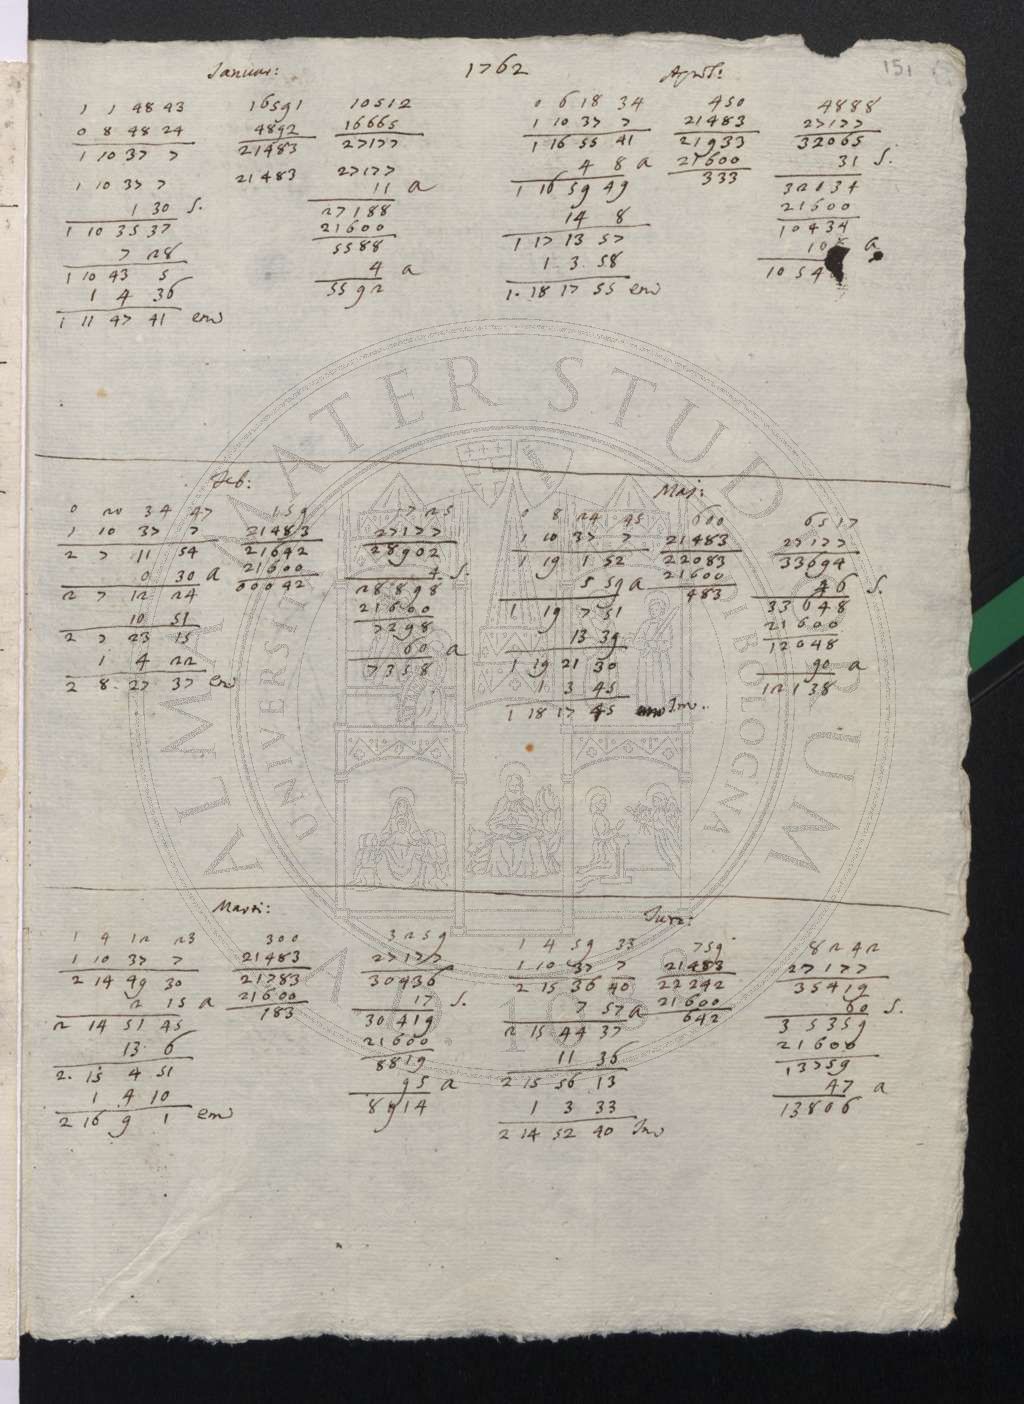 1762
151
Januar:
1 1 48 43 16591 10512
0 8 48 24 4892 16665
1 10 37 7 21483 27177
1 10 37 7 21483 27177
1 30 s. 11 a
1 10 35 37 27188
7 28 21600
1 10 43 5 5588
1 4 36 4 a
1 11 47 41 em 5592
April:
0 6 18 34 450 4888
1 10 37 7 21483 27177
1 16 55 41 21933 32065
4 8 a 21600 31 s.
1 16 59 49 333 32034
14 8 21600
1 17 13 57 10434
1 3 58 a
1. 18 17 55 em
Feb:
0 20 34 47 159 1725
1 10 37 7 21483 27177
2 7 11 54 21642 28902
0 30 a 21600 4 s.
2 7 12 24 00042 28898
10 51 21600
2 7 23 15 7298
1 4 22 60 a
2 8. 27 37 em 7358
Maj:
0 8 24 45 600 6517
1 10 37 7 21483 27177
1 19 1 52 22083 33694
5 59 a 21600 46 s.
1 19 7 51 483 33648
13 39 21600
1 19 21 30 12048
1 3 45 90 a
1 18 17 45 Im.. 12138
Marti:
1 4 12 23 300 3259
1 10 37 7 21483 27177
2 14 49 30 21783 30436
2 15 a 21600 17 s.
2 14 51 45 183 30419
13 6 21600
2. 15 4 51 8819
1 4 10 95 a
2 16 9 1 em 8914
Juni:
1 4 59 33 759 8242
1 10 37 7 21483 27177
2 15 36 40 22242 35419
7 57 a 21600 60 s.
2 15 44 37 642 35359
11 36 21600
2 15 56 13 13759
1 3 33 47 a
2 14 52 40 Im 13806
ALMA MATER STUDIORUM
UNIVERSITÀ DI BOLOGNA
A.D. 1088